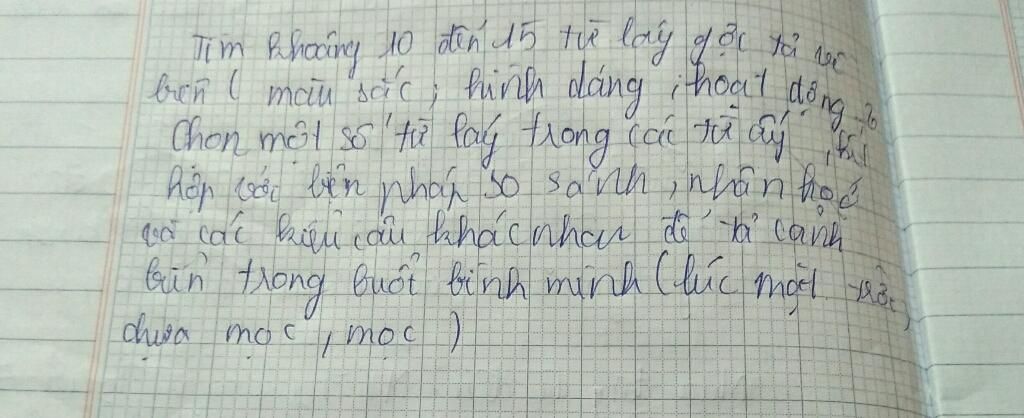 Tìm khoảng 10 đến 15 từ láy gợi tả
biển ( màu sắc, hình dáng, hoạt động
Chọn một số từ láy trong các từ ấy,
hợp với biện pháp so sánh, nhân hoá
và các kiểu câu khác nhau để tả cảnh
biển trong buổi bình minh ( lúc mặt trời
chưa mọc, mọc )